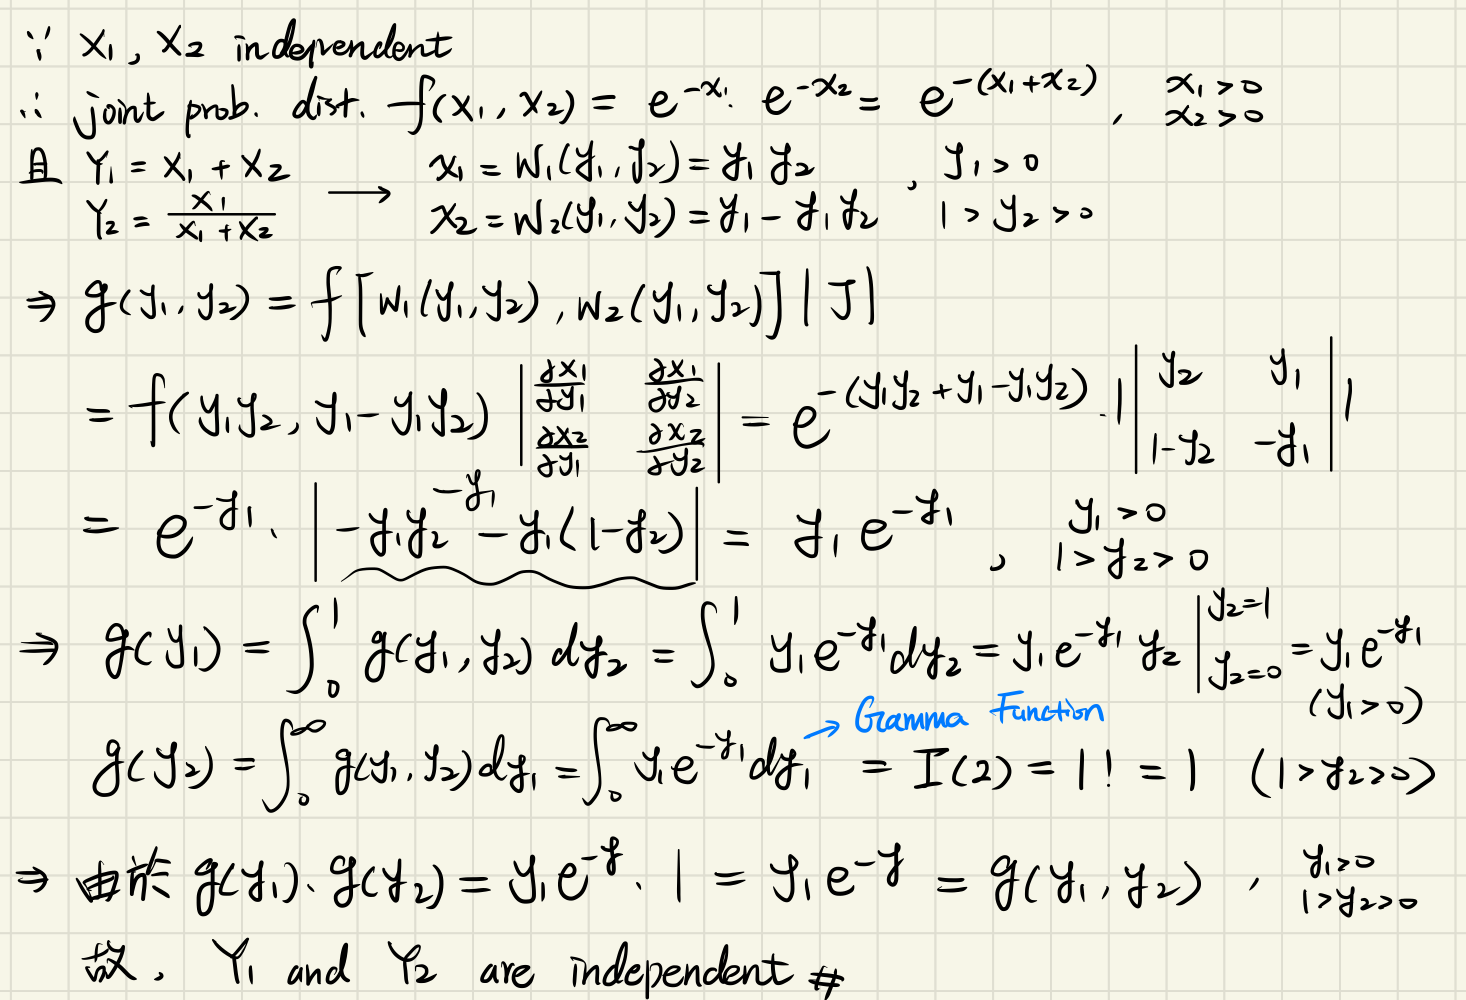 ∵ X₁, X₂ independent
∴ joint prob. dist. f(x₁, x₂) = e^{-x₁} · e^{-x₂} = e^{-(x₁+x₂)} , x₁>0 x₂>0
且 Y₁ = X₁ + X₂ ⟶ x₁ = w₁(y₁, y₂) = y₁ y₂ , y₁>0
Y₂ = X₁/(X₁+X₂) x₂ = w₂(y₁, y₂) = y₁ - y₁y₂ 1>y₂>0
⇒ g(y₁, y₂) = f[w₁(y₁, y₂), w₂(y₁, y₂)] |J|
= f(y₁y₂, y₁-y₁y₂) | ∂x₁/∂y₁ ∂x₁/∂y₂ ; ∂x₂/∂y₁ ∂x₂/∂y₂ | = e^{-(y₁y₂+y₁-y₁y₂)} · | | y₂ y₁ ; 1-y₂ -y₁ | |
-y₁
= e^{-y₁} · |-y₁y₂ - y₁(1-y₂)| = y₁ e^{-y₁} , y₁>0 1>y₂>0
⇒ g(y₁) = ∫₀¹ g(y₁, y₂) dy₂ = ∫₀¹ y₁e^{-y₁} dy₂ = y₁e^{-y₁} y₂ |_{y₂=0}^{y₂=1} = y₁e^{-y₁} (y₁>0)
→ Gamma Function
g(y₂) = ∫₀^∞ g(y₁, y₂) dy₁ = ∫₀^∞ y₁e^{-y₁} dy₁ = Γ(2) = 1! = 1 (1>y₂>0)
⇒ 由於 g(y₁) · g(y₂) = y₁e^{-y} · 1 = y₁e^{-y} = g(y₁, y₂) , y₁>0 1>y₂>0
故, Y₁ and Y₂ are independent #